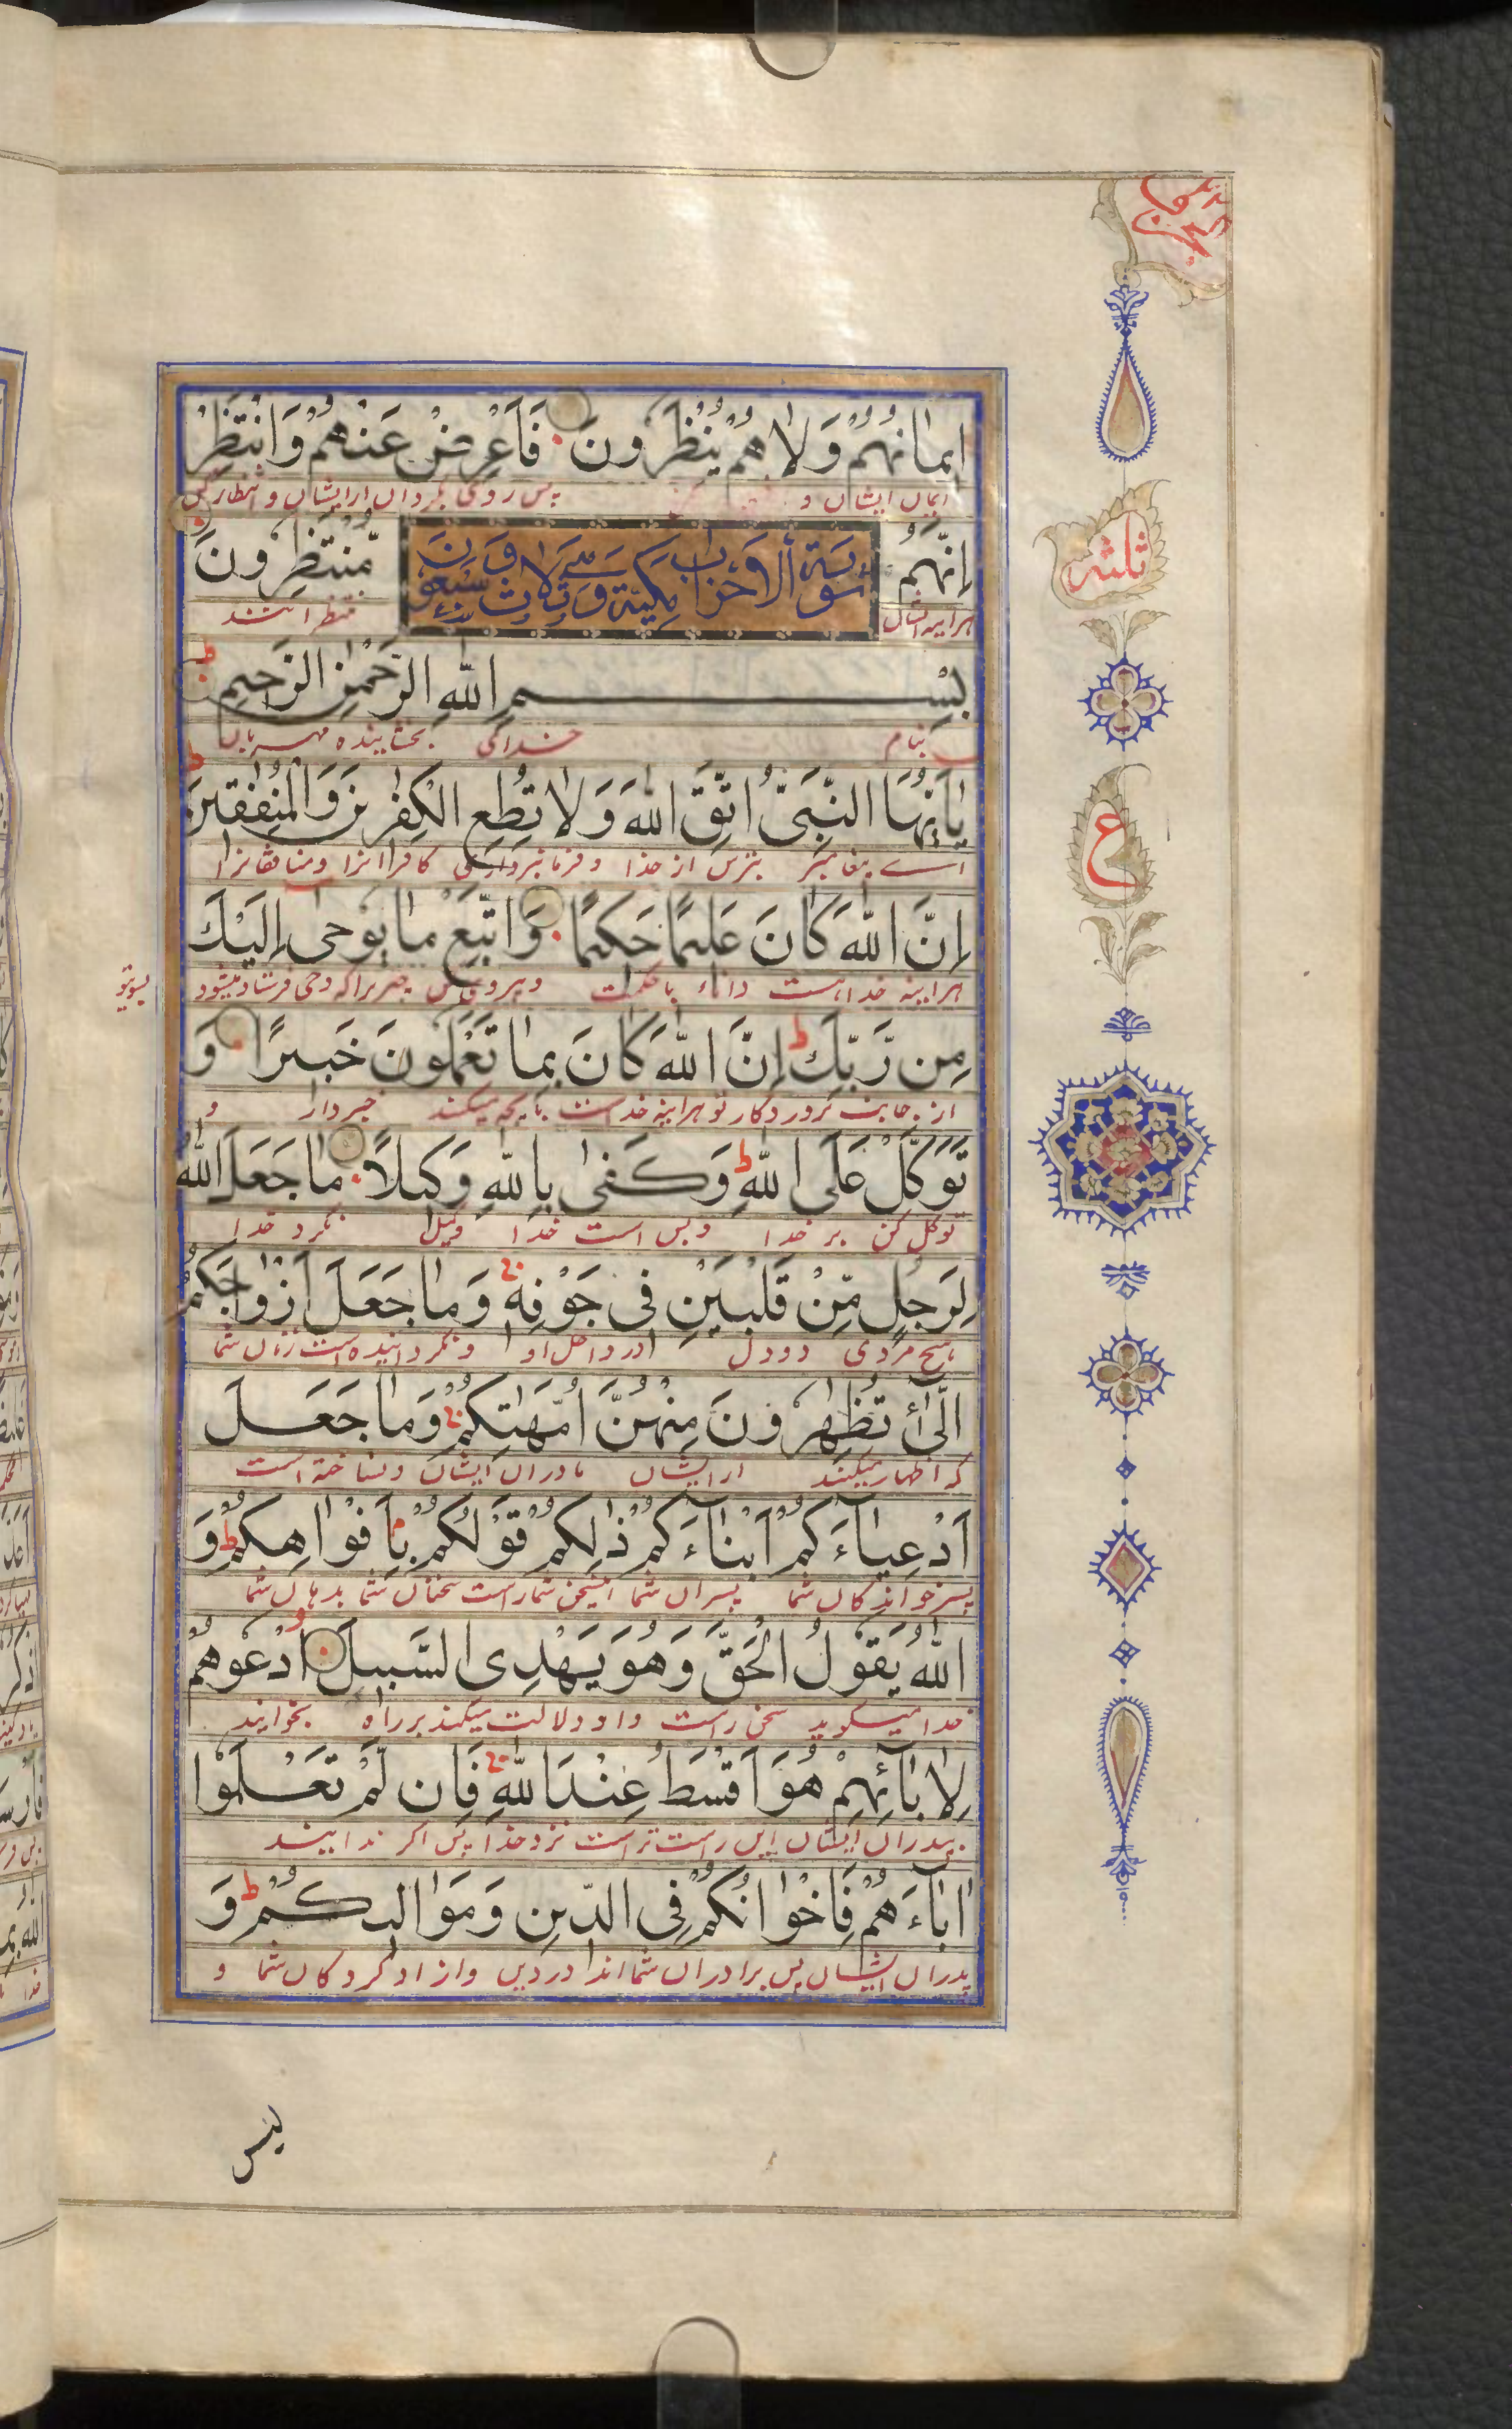 اِيمَانُهُمْ وَلَا هُمْ يُنْظَرُونَ فَاَعْرِضْ عَنْهُمْ وَانْتَظِرْ
ایمان ایشان و پس روی بگردان ازایشان و انتظار کن
اِنَّهُمْ مُّنْتَظِرُونَ
سورة الاحزاب مكية وهي ثلاث وسبعون
هرآیینه ایشان منتظرانند
بِسْمِ اللّٰهِ الرَّحْمٰنِ الرَّحِيمِ
بنام خدای بخشاینده مهربان
يٰاَيُّهَا النَّبِىُّ اتَّقِ اللّٰهَ وَلَا تُطِعِ الْكٰفِرِينَ وَالْمُنٰفِقِينَ
اے پیغامبر بترس از خدا و فرمانبرداری کافرانرا و منافقانرا
اِنَّ اللّٰهَ كَانَ عَلِيمًا حَكِيمًا وَاتَّبِعْ مَا يُوحٰى اِلَيْكَ
هرآیینه خدا هست داناء باحکمت و پیروی کن چیزیراکه وحی فرستاده میشود
بسوی تو
مِن رَّبِّكَ ط اِنَّ اللّٰهَ كَانَ بِمَا تَعْمَلُونَ خَبِيرًا وَ
از جانب پروردگار تو هرآیینه خدا هست بآنچه میکنند خبردار و
تَوَكَّلْ عَلَى اللّٰهِ ط وَكَفٰى بِاللّٰهِ وَكِيلًا مَا جَعَلَ اللّٰهُ
توکل کن بر خدا و بس است خدا وکیل نکرد خدا
لِرَجُلٍ مِّنْ قَلْبَيْنِ فِى جَوْفِهٖ وَمَا جَعَلَ اَزْوَاجَكُمُ
هیچ مردی دودل در داخل او و نگردانیده است زنان شما
الّٰٓئِ تُظٰهِرُونَ مِنْهُنَّ اُمَّهٰتِكُمْ وَمَا جَعَلَ
که اظهار میکنند ازایشان مادران ایشان و نساخته است
اَدْعِيَآءَكُمْ اَبْنَآءَكُمْ ذٰلِكُمْ قَوْلُكُمْ بِاَفْوَاهِكُمْ ط وَ
پسرخواندگان شما پسران شما اینسخن شماراست سخنان شما بدهان شما
اللّٰهُ يَقُولُ الْحَقَّ وَهُوَ يَهْدِى السَّبِيلَ اُدْعُوهُمْ
خدا میگوید سخن راست و او دلالت میکند بر راه بخوانید
لِاٰبَآئِهِمْ هُوَ اَقْسَطُ عِنْدَ اللّٰهِ فَاِن لَّمْ تَعْلَمُوا
بپدران ایشان این راست تراست نزد خدا پس اگر ندانید
اٰبَآءَهُمْ فَاِخْوَانُكُمْ فِى الدِّينِ وَمَوَالِيكُمْ ط وَ
پدران ایشان پس برادران شما اند در دین و آزاد کردگان شما و
ثلثه
ع
لیس